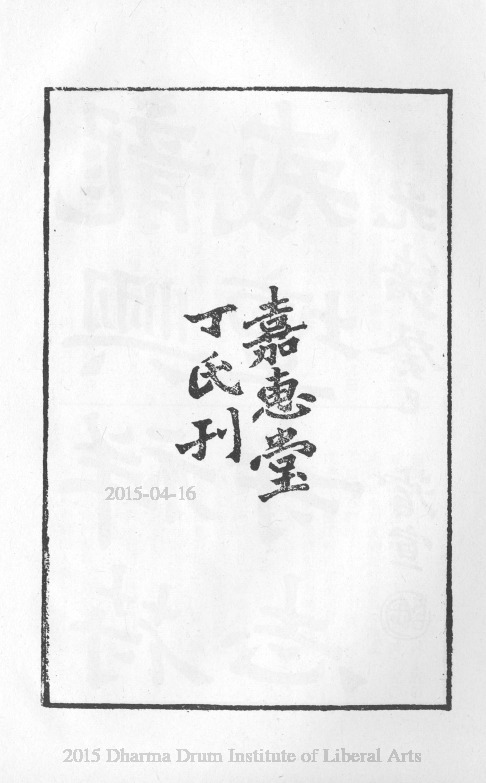 嘉惠堂
丁氏刊
2015-04-16
2015 Dharma Drum Institute of Liberal Arts